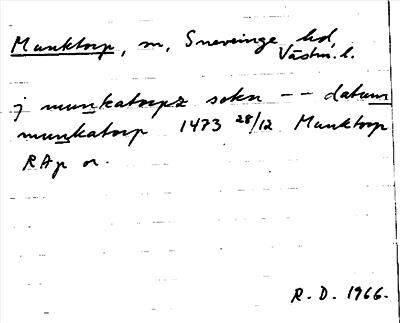 Munktorp, sn, Snevringe hd,
Västm. l.
j munkatorpz sokn -- datum
munkatorp 1473 28/12 Munktorp
RAp or.
R. D. 1966.